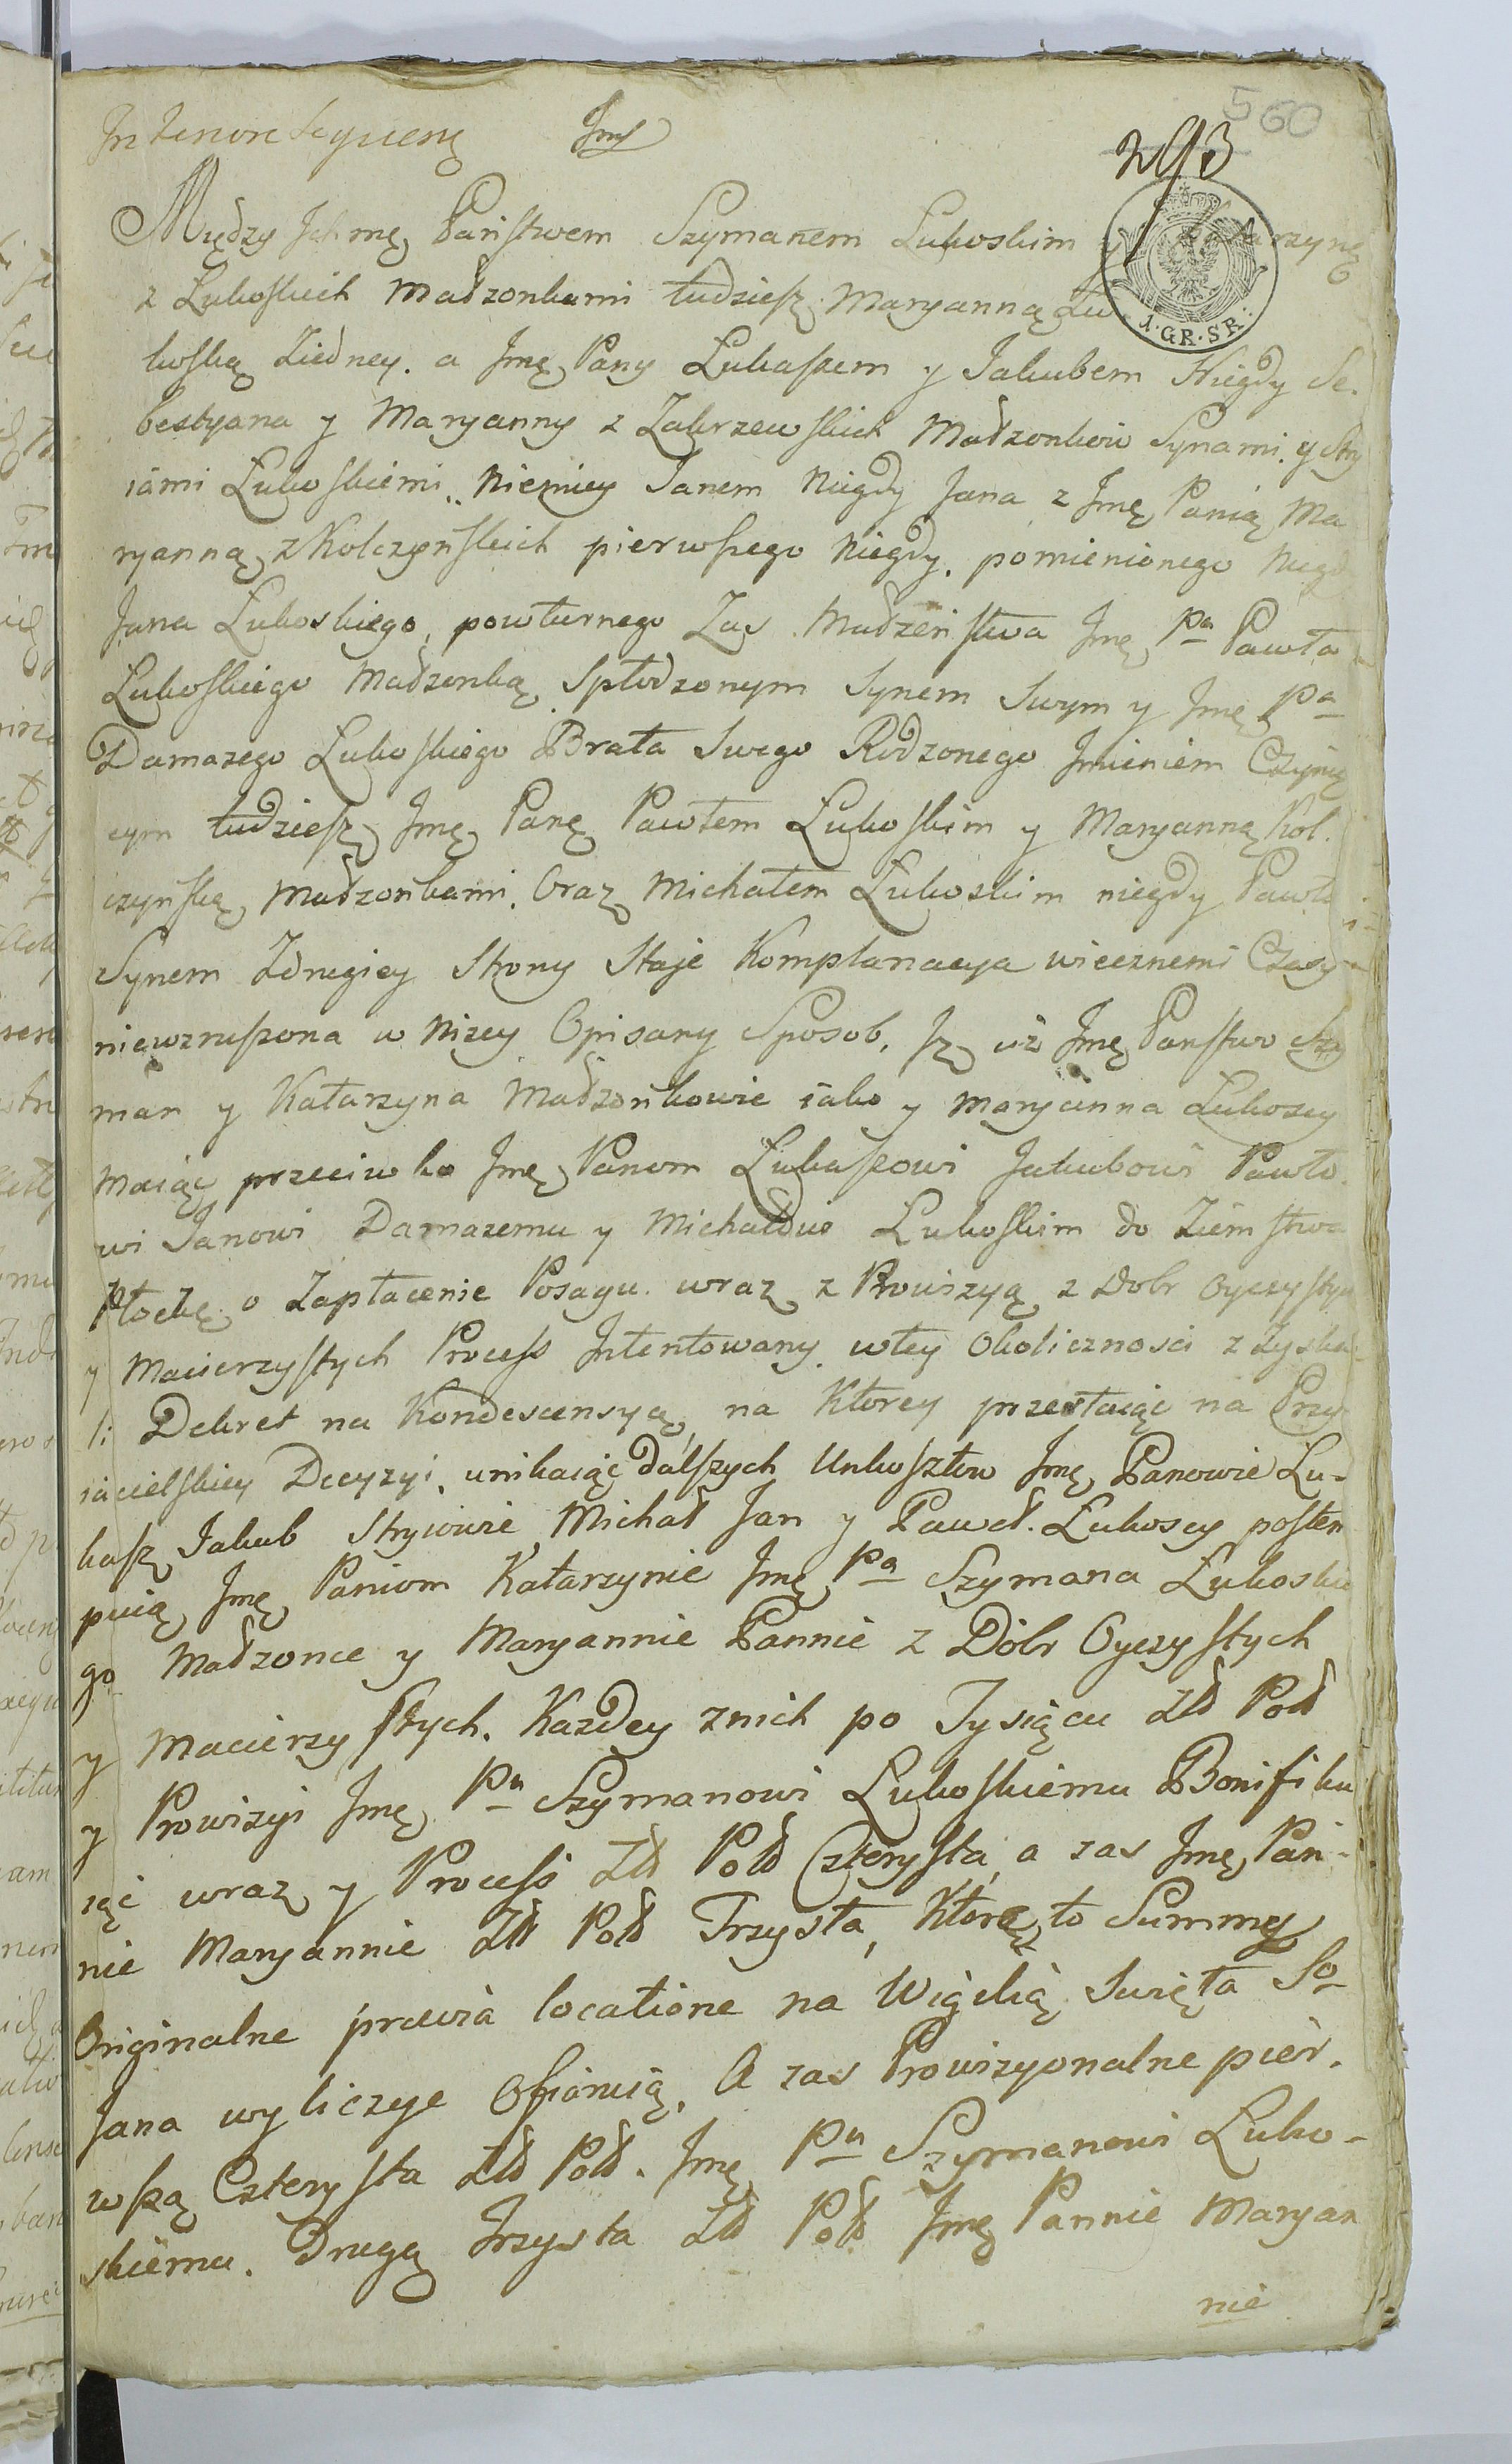 560
293
In tenore seqventi Jms
Między Ichmę Państwem Szymanem Lukoskim y Katarzyną
1·GR·SR·
z Lukoskich Małzonkami tudziesz Maryanną Lu
koską Ziedney. a Jmę Pany Lukaszem y Jakubem Niegdy Se.
bestyana y Maryanny z Zakrzewskich Małzonkow Synami y Stry
iami Lukoskiemi, niemniey Janem Niegdy Jana z Jmę Panią Ma
ryanną z Kolczynskich pierwszego niegdy, pomienionego Niegdy
Jana Lukoskiego, powturnego Zas Małzenstwa Jmę Pa Pawła
Lukoskiego Małzonką Spłodzonym Synem Swym y Jmę Pa
Damazego Lukoskiego Brata Swego Rodzonego Jmieniem Czynią
cym tudziesz Jmę Panę Pawłem Lukoskim y Maryanną Kol.
czynską Małzonkami, Oraz Michałem Lukoskim niegdy Pawła
Synem Zdrugiey Strony Staje Komplanacya wiecznemi Czasy
niewzruszona w nizey Opisany Sposob, Jz iż Jmę Panstwo Szy
man y Katarzyna Małzonkowie iako y Maryanna Lukoscy
maiąc przeciwko Jmę Panom Lukaszowi Jakubowi Pawło
wi Janowi Damazemu y Michałowi Lukoskim do Ziemstwa
Płockę o Zapłacenie Posagu wraz z Prowizyą z Dobr Oyczystych
y Macierzystych Process Intentowany wtey Okolicznosci zzyska
li Dekret na Kondescensyą, na Ktorey przestaiąc na Przy
iacielskiey Decyzyi, unikaiąc dalszych Unkosztow Jmę Panowie Lu-
kasz Jakub Stryiowie, Michał Jan y Paweł Lukoscy postem
puią Jmę Paniom Katarzynie Jmę Pa Szymana Lukoskie
go Małzonce y Maryannie Pannie z Dobr Oyczystych
y Macierzystych. Kazdey znich po Tysiącu Zł Pol
y Prowizyi Jmę Pu Szymanowi Lukoskiemu Bonifiku
iąc wraz y Process Zł Pol Czterysta, a zas Jmę Pan-
nie Maryannie Zł Pol Trzysta, Ktorę to Summę
Originalne prævia locatione na Wigilią Swięta So
Jana wyliczyc Ofiaruią, A zas Prowizyonalne pier.
wszą Czterysta Zł Pol. Jmę Pu Szymanowi Luko-
skiemu. Drugą Trzysta Zł Pol Jmę Pannie Maryan
nie